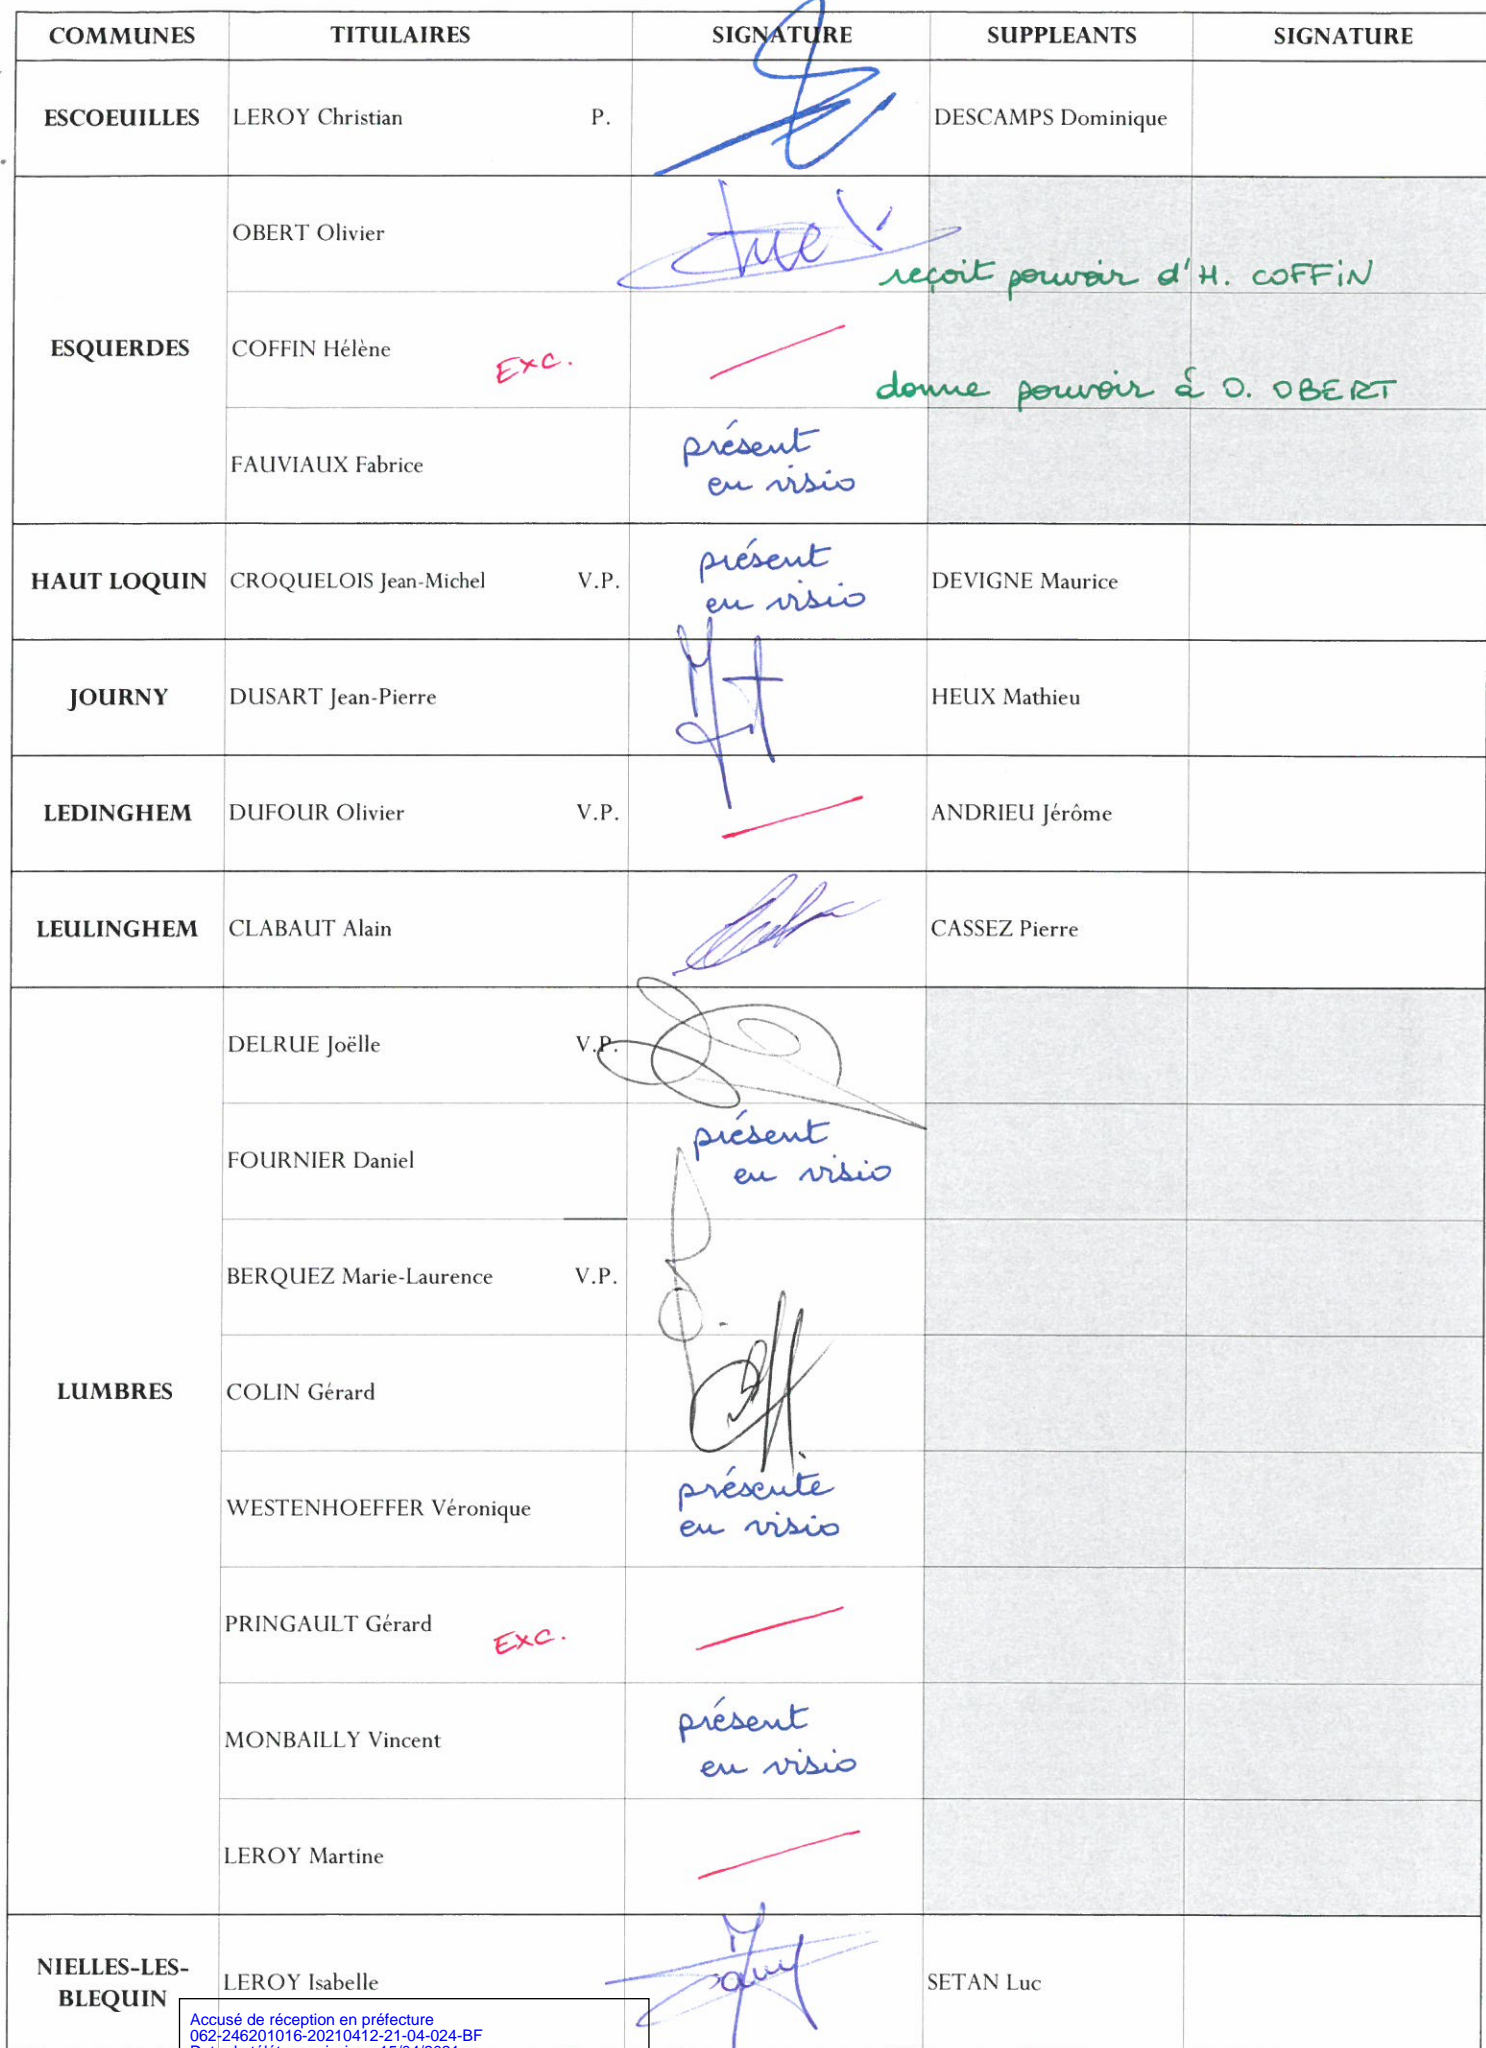 COMMUNES TITULAIRES SIGNATURE SUPPLEANTS SIGNATURE
ESCOEUILLES LEROY Christian P. DESCAMPS Dominique
OBERT Olivier
reçoit pouvoir d'H. COFFIN
ESQUERDES COFFIN Hélène Exc.
donne pouvoir à O. OBERT
FAUVIAUX Fabrice présent
en visio
HAUT LOQUIN CROQUELOIS Jean-Michel V.P. présent DEVIGNE Maurice
en visio
JOURNY DUSART Jean-Pierre HEUX Mathieu
LEDINGHEM DUFOUR Olivier V.P. ANDRIEU Jérôme
LEULINGHEM CLABAUT Alain CASSEZ Pierre
DELRUE Joëlle V.P.
FOURNIER Daniel présent
en visio
BERQUEZ Marie-Laurence V.P.
LUMBRES COLIN Gérard
WESTENHOEFFER Véronique présente
en visio
PRINGAULT Gérard Exc.
MONBAILLY Vincent présent
en visio
LEROY Martine
NIELLES-LES-
BLEQUIN LEROY Isabelle SETAN Luc
Accusé de réception en préfecture
062-246201016-20210412-21-04-024-BF